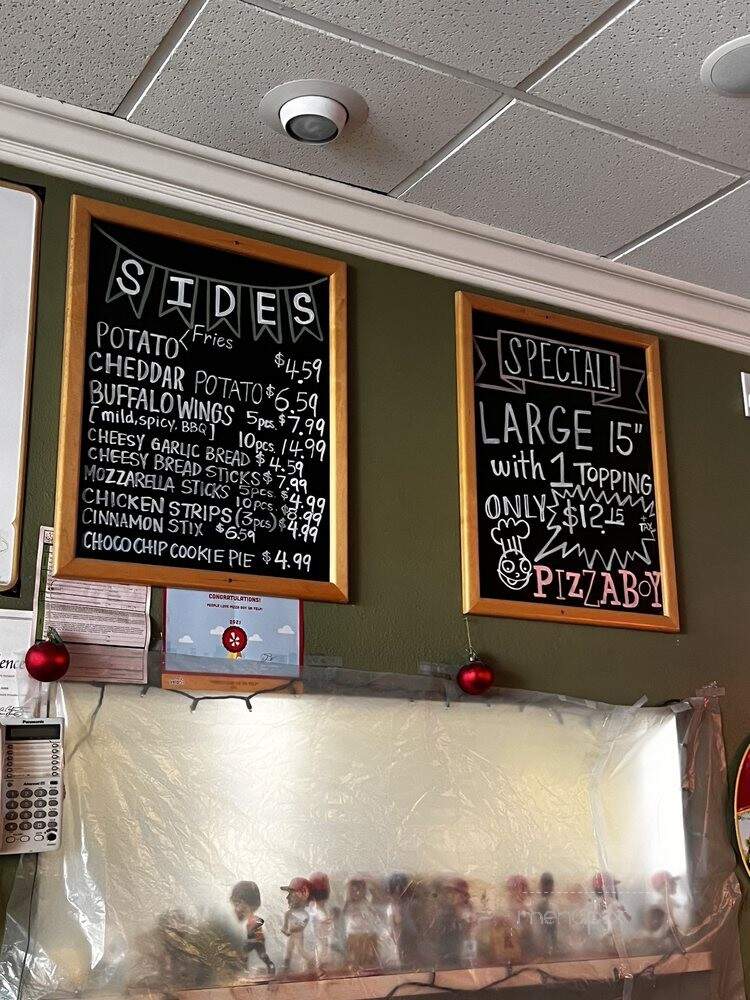 SIDES
POTATO Fries $4.59
CHEDDAR POTATO $6.59
BUFFALO WINGS 5pcs. $7.99
[mild, spicy, BBQ] 10pcs. 14.99
CHEESY GARLIC BREAD $4.59
CHEESY BREAD STICKS $7.99
MOZZARELLA STICKS 5pcs. $4.99
10pcs. $8.99
CHICKEN STRIPS (3pcs) $4.99
CINNAMON STIX $6.59
CHOCO CHIP COOKIE PIE $4.99
SPECIAL!
LARGE 15"
with 1 TOPPING
ONLY $12.15
+ TAX
PIZZABOY
CONGRATULATIONS!
PEOPLE LOVE PIZZA BOY ON YELP!
2021
Panasonic
menupix